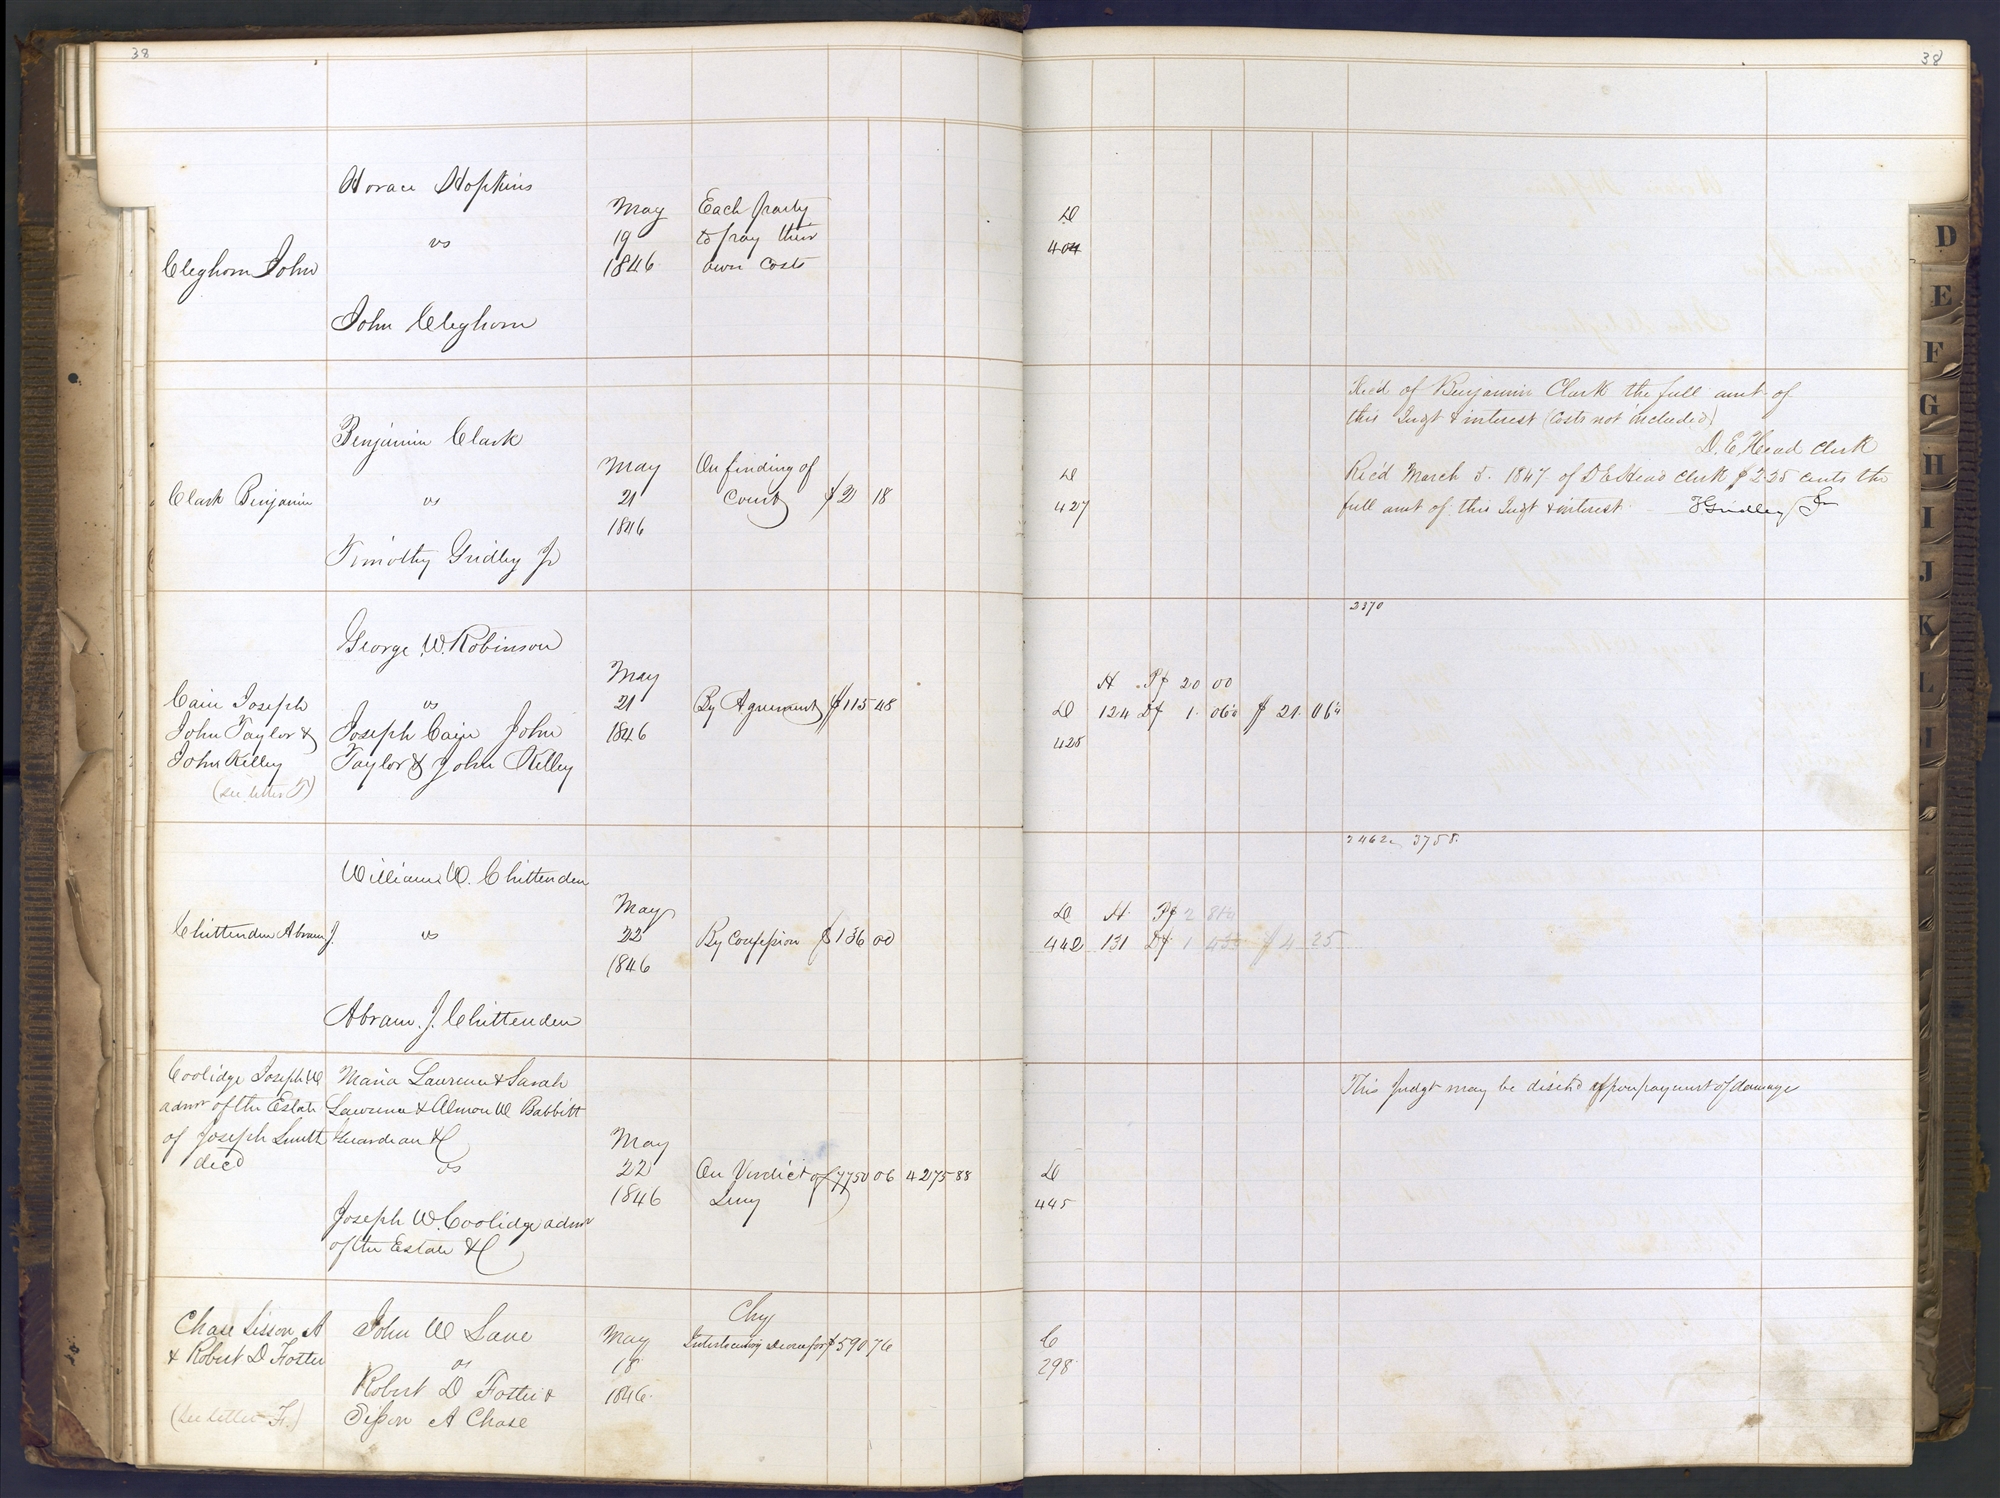 38
Cleghorn John
Horace Hopkins
vs
John Cleghorn
May
19
1846
Each party
to pay their
own costs
Clark Benjamin
Benjamin Clark
vs
Timothy Gridley Jr
May
21
1846
On finding of
Court
$2 18
Cain Joseph
John Taylor &
John Kelley
(see letter T)
George W. Robinson
vs
Joseph Cain John
Taylor & John Kelley
May
21
1846
By Agreement
$115 48
Chittenden Abram J.
William W. Chittenden
vs
Abram. J. Chittenden
May
22
1846
By Confession
$136 00
Coolidge Joseph W
admr of the Estate
of Joseph Smith
decd
Maria Lawrence & Sarah
Lawrence & Almon W Babbitt
Guardian &C
vs
Joseph W. Coolidge admr
of the Estate &C
May
22
1846
On Verdict of
Jury
7750 06 4275 88
Chase Sisson A
& Robert D Foster
(see letter F.)
John W Lane
vs
Robert D Foster &
Sisson A Chase
May
18
1846
Chy
Interlocutory Decree for $590 76
38
D
404
D
427
Rec'd of Benjamin Clark the full amt of
this Judgt & interest (Costs not included)
D. E. Head Clerk
Rec'd March 5. 1847 of D E Head Clerk $2.25 cents the
full amt of this Judgt & interest T Gridley Jr
2370
D
428
H
124
Pf 20 00
Df 1. 06¼ $21. 06¼
2462 3758.
D
442
H.
131
Pf 2
Df 1 $4 25
This Judgt may be disch'd upon payment of damage
D
445
C
298
D
E
F
G
H
I
J
K
L